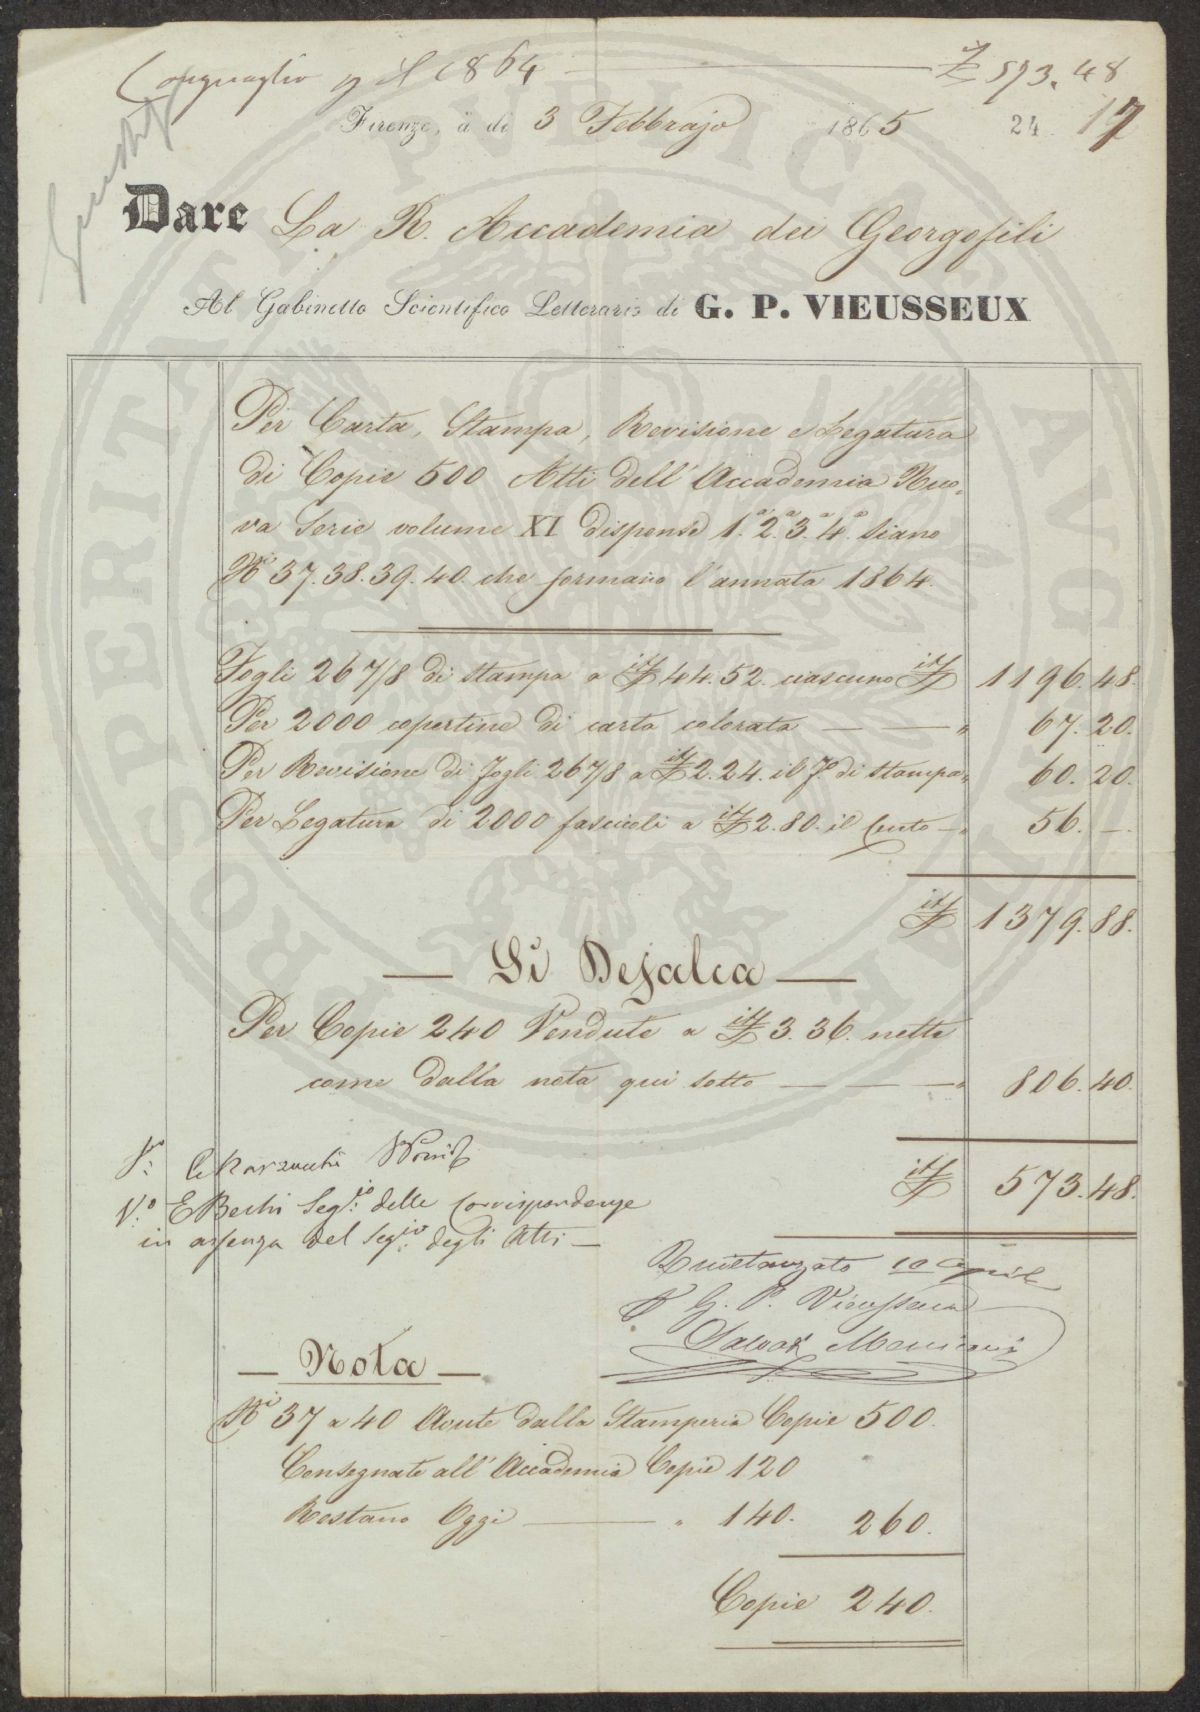 Conguaglio p il 1864 — £ 573.48
Firenze, a di 3 Febbrajo 1865 24. 17
Dare La R. Accademia dei Georgofili
Al Gabinetto Scientifico Letterario di G. P. VIEUSSEUX
Per Carta, Stampa, Revisione e Legatura
di Copie 500 Atti dell' Accademia Nuo-
va Serie volume XI dispense 1.a 2.a 3.a 4.a siano
Ni 37. 38. 39. 40. che formano l'annata 1864.
Fogli 26 7/8 di stampa a it£ 44.52. ciascuno it£ 1196.48.
Per 2000 copertine di carta colorata — — " 67.20.
Per Revisione di fogli 26 7/8 a it£ 2.24. il fo. di stampa " 60.20.
Per Legatura di 2000 fascicoli a it£ 2.80. il Cento — " 56. —.
it£ 1379.88.
— Si Defalca —
Per Copie 240 Vendute a it£ 3.36. nette
come dalla nota qui sotto — — — " 806.40.
V.o C. Marzucchi
it£ 573.48.
V.o E Bechi Seg.io delle Corrispondenze
in assenza del Seg.io degli Atti —
Quietanzato 10 Aprile
G. P. Vieusseux
— Nota —
Ni 37 a 40 Avute dalla Stamperia Copie 500.
Consegnate all' Accademia Copie 120
Restano Oggi — " 140. 260.
Copie 240.
PROSPERITATI PVBLICAE AVGENDAE